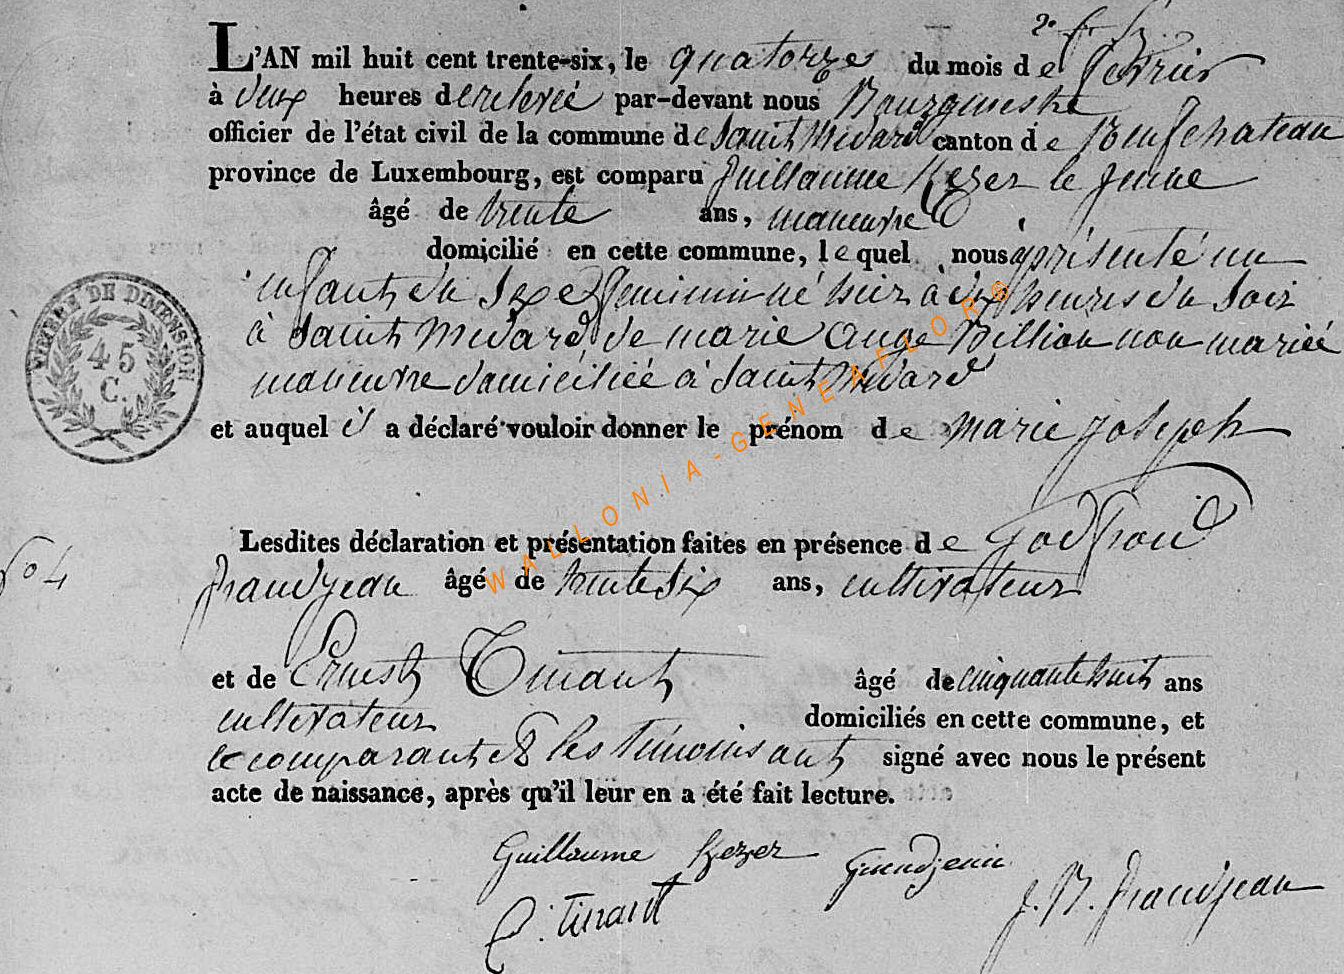 L'AN mil huit cent trente-six, le quatorze du mois de fevrier
à deux heures de relevée par-devant nous Bourgmestre
officier de l'état civil de la commune de Saint Médard canton de Neufchateau
province de Luxembourg, est comparu Guillaume Kezer le jeune
âgé de trente ans, maneuvre
domicilié en cette commune, lequel nous a présenté un
enfant du sexe feminin né hier à dix heures du soir
à Saint Medard de marie Ange Billion non mariée
maneuvre domiciliée à Saint Médard
et auquel il a déclaré vouloir donner le prénom de marie joseph
Lesdites déclaration et présentation faites en présence de Godfroid
Grandjean âgé de trente six ans, cultivateur
et de Ernest Tinant âgé de cinquante huit ans
cultivateur domiciliés en cette commune, et
le comparant et les témoins ont signé avec nous le présent
acte de naissance, après qu'il leur en a été fait lecture.
Guillaume Kezer Grandjean
J. N. Grandjean
E. Tinant
TIMBRE DE DIMENSION
45
C.
WALLONIA-GENEAFLOR©